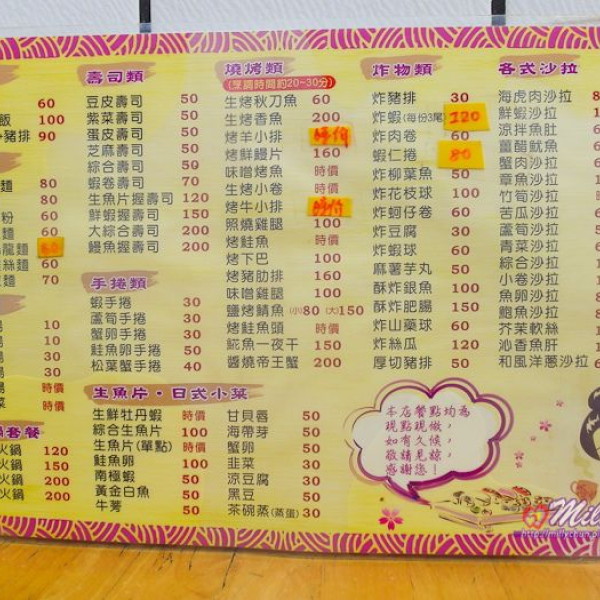 60
飯 100
豬排 90
麵
麵 80
80
粉 60
麵 60
烏龍麵 60
絲麵 60
麵 70
10
10
40
30
時價
菜 時價
鍋套餐
火鍋 120
火鍋 150
火鍋 200
火鍋 200
壽司類
豆皮壽司 50
紫菜壽司 50
蛋皮壽司 50
芝麻壽司 50
綜合壽司 50
蝦卷壽司 70
生魚片握壽司 120
鮮蝦握壽司 150
大綜合壽司 200
鰻魚握壽司 200
手捲類
蝦手捲 30
蘆筍手捲 30
蟹卵手捲 30
鮭魚卵手捲 50
松葉蟹手捲 40
生魚片・日式小菜
生鮮牡丹蝦 時價
綜合生魚片 100
生魚片(單點) 時價
鮭魚卵 100
南極蝦 50
黃金白魚 50
牛蒡 50
甘貝唇 50
海帶芽 50
蟹卵 50
韭菜 30
涼豆腐 30
黑豆 50
茶碗蒸(蒸蛋) 30
燒烤類
(烹調時間約20~30分)
生烤秋刀魚 60
生烤香魚 200
烤羊小排 時價
烤鮮鰻片 160
味噌烤魚 時價
生烤小卷 時價
烤牛小排 時價
照燒雞腿 100
烤鮭魚 時價
烤下巴 100
烤豬肋排 160
味噌雞腿 100
鹽烤鯖魚 (小)80 (大)150
烤鮭魚頭 時價
鯤魚一夜干 150
醬燒帝王蟹 200
炸物類
炸豬排 30
炸蝦(每份3尾) 120
炸肉卷 60
蝦仁捲 80
炸柳葉魚 50
炸花枝球 100
炸蚵仔卷 60
炸豆腐 30
炸蝦球 60
麻薯芋丸 50
酥炸銀魚 100
酥炸肥腸 150
炸山藥球 60
炸絲瓜 120
厚切豬排 50
本店餐點均為
現點現做,
如有久候,
敬請見諒,
感謝您!
各式沙拉
海虎肉沙拉
鮮蝦沙拉
涼拌魚肚
薑醋魷魚
蟹肉沙拉
章魚沙拉
竹筍沙拉
苦瓜沙拉
蘆筍沙拉
青菜沙拉
綜合沙拉
小卷沙拉
魚卵沙拉
鮑魚沙拉
芥茉軟絲
沁香魚肝
和風洋蔥沙拉
Mill